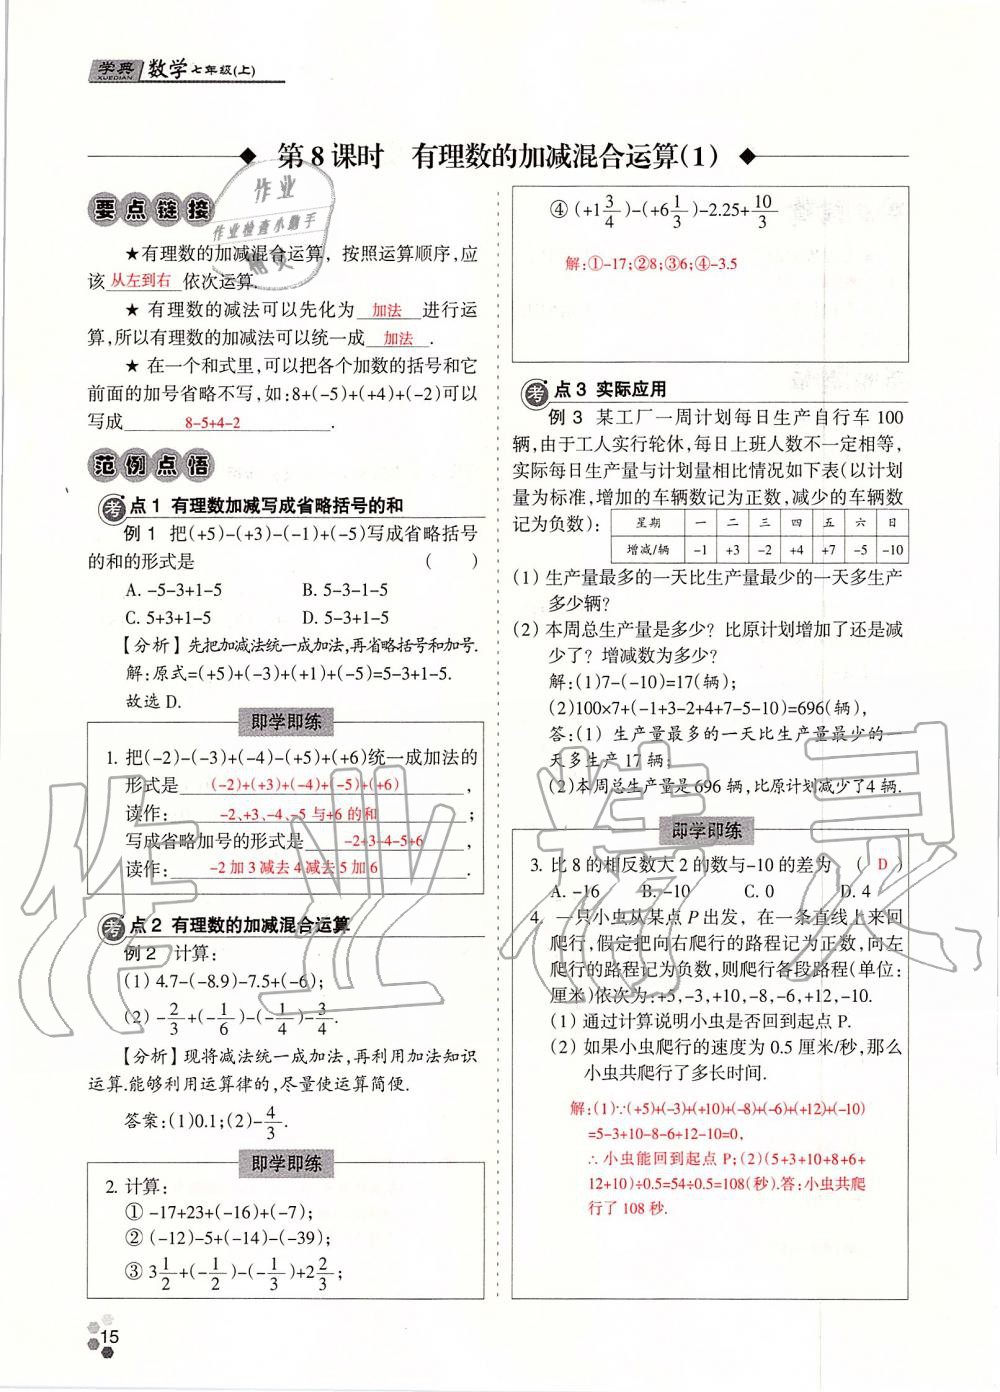 学典 数学 七年级(上)
XUEDIAN
第8课时 有理数的加减混合运算(1)
要点链接
★有理数的加减混合运算，按照运算顺序,应
该 从左到右 依次运算.
★ 有理数的减法可以先化为 加法 进行运
算,所以有理数的加减法可以统一成 加法 .
★ 在一个和式里,可以把各个加数的括号和它
前面的加号省略不写,如:8+(-5)+(+4)+(-2)可以
写成 8-5+4-2 .
范例点悟
考点1 有理数加减写成省略括号的和
例1 把(+5)-(+3)-(-1)+(-5)写成省略括号
的和的形式是 ( )
A. -5-3+1-5 B. 5-3-1-5
C. 5+3+1-5 D. 5-3+1-5
【分析】先把加减法统一成加法,再省略括号和加号.
解:原式=(+5)+(-3)+(+1)+(-5)=5-3+1-5.
故选 D.
即学即练
1. 把(-2)-(-3)+(-4)-(+5)+(+6)统一成加法的
形式是 (-2)+(+3)+(-4)+(-5)+(+6) ,
读作: -2、+3、-4、-5 与+6 的和 ;
写成省略加号的形式是 -2+3-4-5+6 ,
读作: -2 加 3 减去 4 减去 5 加 6 .
考点2 有理数的加减混合运算
例2 计算:
(1) 4.7-(-8.9)-7.5+(-6);
(2) -2/3+(-1/6)-(-1/4)-3/4.
【分析】现将减法统一成加法,再利用加法知识
运算.能够利用运算律的,尽量使运算简便.
答案:(1)0.1;(2)-4/3.
即学即练
2. 计算:
① -17+23+(-16)+(-7);
② (-12)-5+(-14)-(-39);
③ 3 1/2+(-1/2)-(-1/3)+2 2/3;
④ (+1 3/4)-(+6 1/3)-2.25+10/3
解:①-17;②8;③6;④-3.5
考点3 实际应用
例3 某工厂一周计划每日生产自行车 100
辆,由于工人实行轮休,每日上班人数不一定相等,
实际每日生产量与计划量相比情况如下表(以计划
量为标准,增加的车辆数记为正数,减少的车辆数
记为负数):
星期 一 二 三 四 五 六 日
增减/辆 -1 +3 -2 +4 +7 -5 -10
(1) 生产量最多的一天比生产量最少的一天多生产
多少辆?
(2) 本周总生产量是多少? 比原计划增加了还是减
少了? 增减数为多少?
解:(1)7-(-10)=17(辆);
(2)100×7+(-1+3-2+4+7-5-10)=696(辆),
答:(1) 生产量最多的一天比生产量最少的一
天多生产 17 辆;
(2)本周总生产量是 696 辆,比原计划减少了4 辆.
即学即练
3. 比 8 的相反数大 2 的数与-10 的差为 ( D )
A. -16 B. -10 C. 0 D. 4
4. 一只小虫从某点 P 出发，在一条直线上来回
爬行,假定把向右爬行的路程记为正数,向左
爬行的路程记为负数,则爬行各段路程(单位:
厘米)依次为:+5,-3,+10,-8,-6,+12,-10.
(1) 通过计算说明小虫是否回到起点 P.
(2) 如果小虫爬行的速度为 0.5 厘米/秒,那么
小虫共爬行了多长时间.
解:(1)∵(+5)+(-3)+(+10)+(-8)+(-6)+(+12)+(-10)
=5-3+10-8-6+12-10=0,
∴小虫能回到起点 P;(2)(5+3+10+8+6+
12+10)÷0.5=54÷0.5=108(秒).答:小虫共爬
行了 108 秒.
15
作业
作业检查小助手
精灵
作业精灵